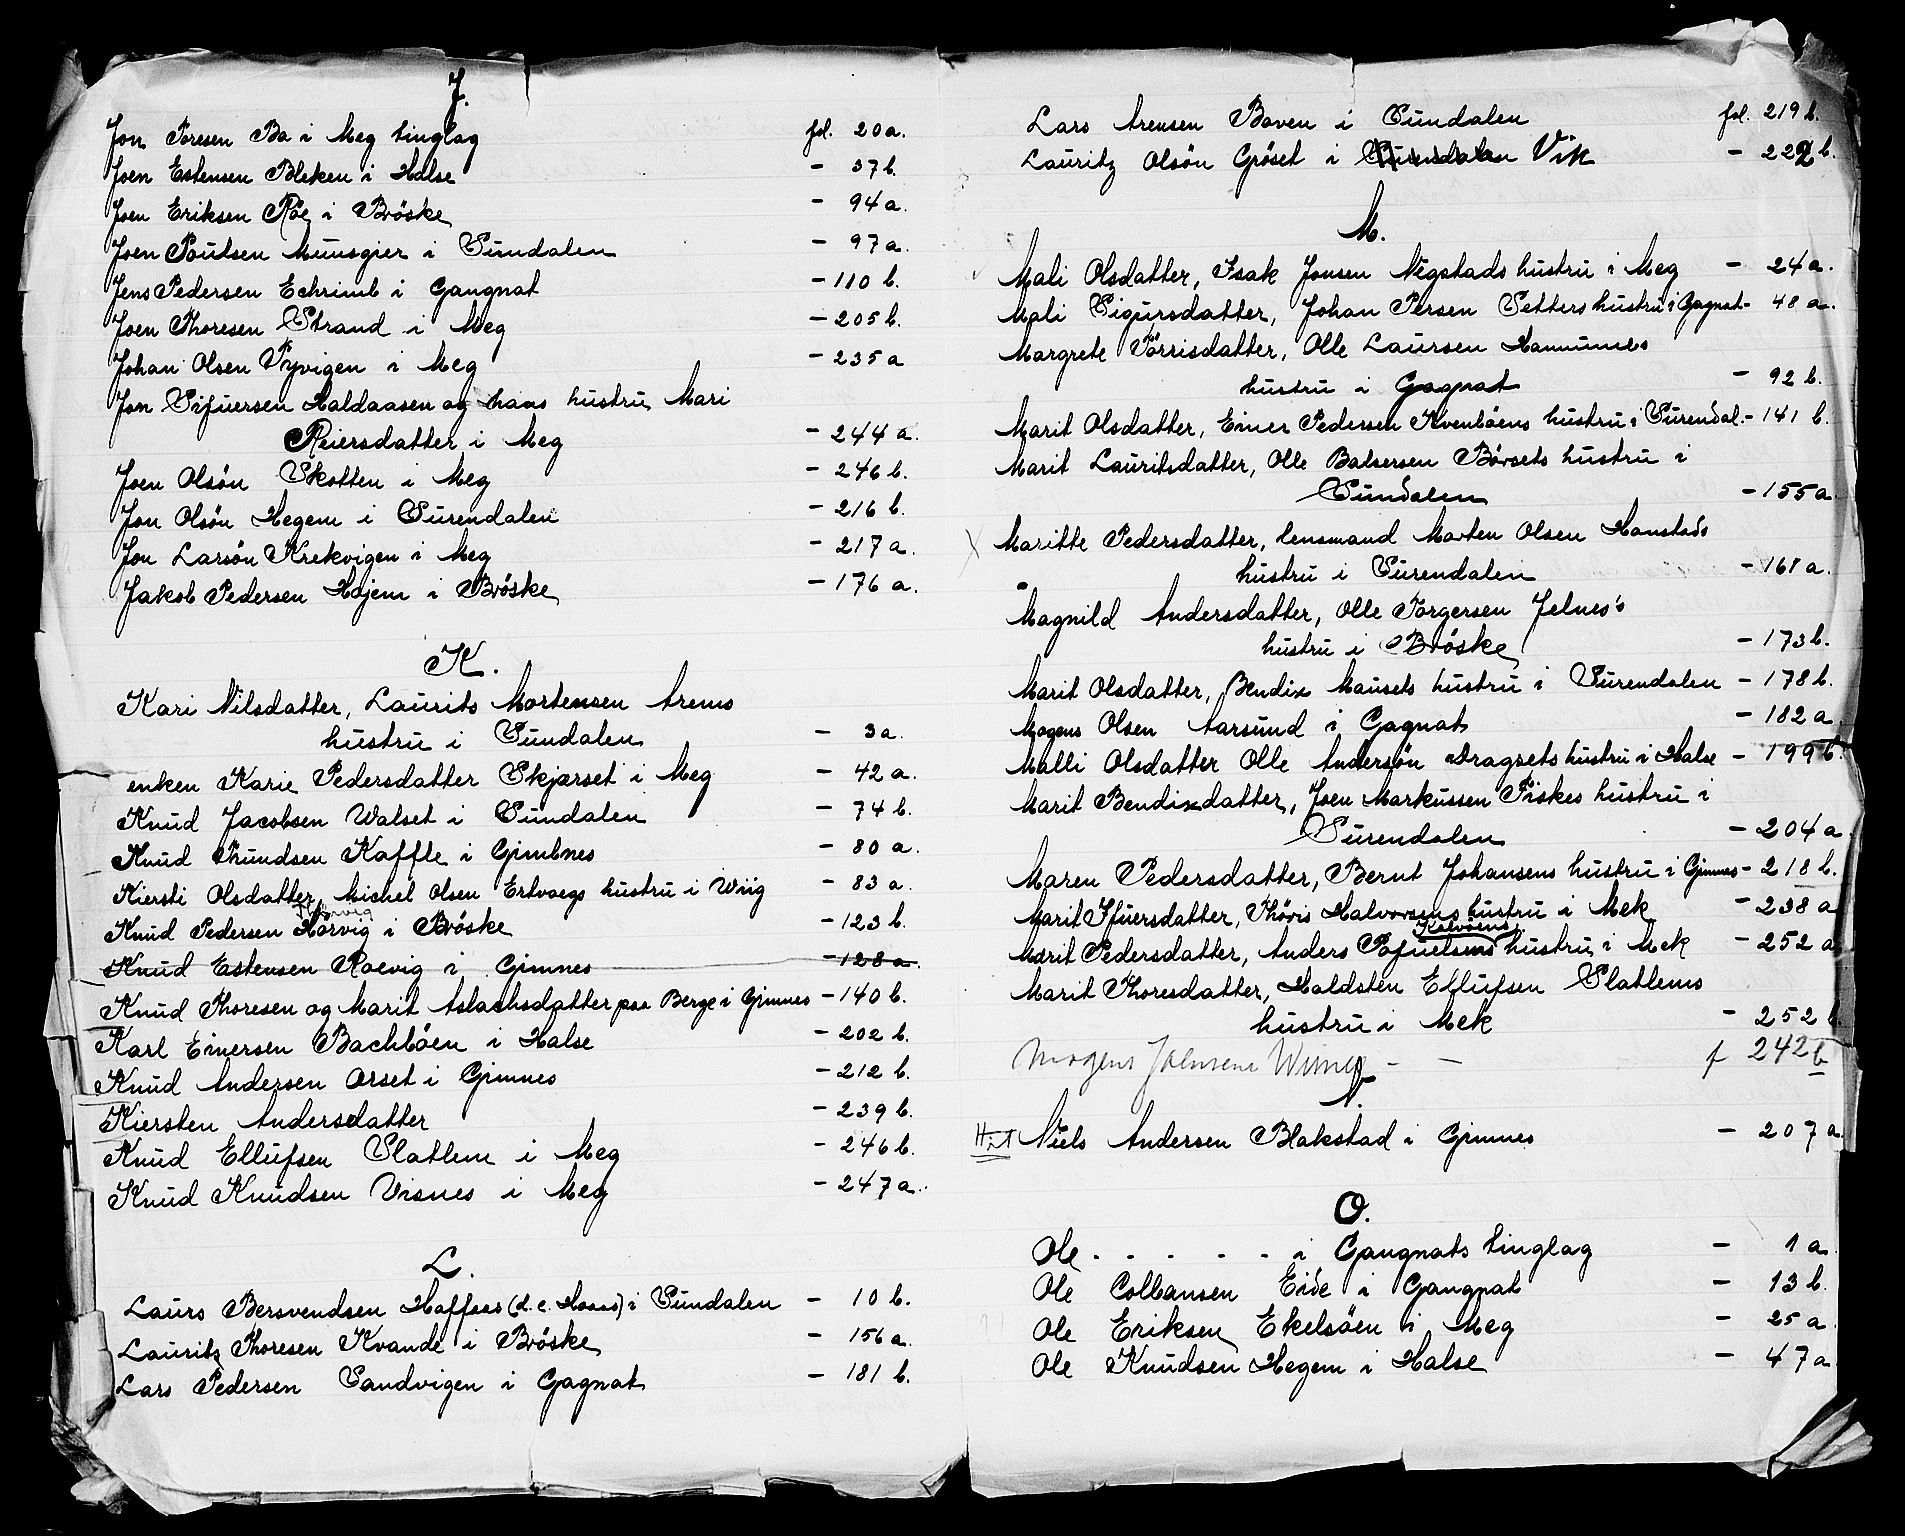 J.
Jon Toresen Bø i Meg tinglag fol. 20 a.
Joen Estensen Bleken i Halse - 37 b.
Joen Eriksen Röe i Bröske - 94 a.
Joen Poulsen Muusgier i Sundalen - 97 a.
Jens Pedersen Echrimb i Gangnat - 110 b.
Joen Thoresen Strand i Meg - 205 b.
Johan Olsen Vyvigen i Meg - 235 a
Jon Sifuersen Haldaasen og hans hustru Mari
Reiersdatter i Meg - 244 a.
Joen Olsön Skotten i Meg - 246 b.
Jon Olsön Hegem i Surendalen - 216 b.
Jon Larsön Krekvigen i Meg - 217 a.
Jakob Pedersen Højem i Bröske - 176 a.
K.
Kari Nilsdatter, Laurits Mortensen Arems
hustru i Sundalen - 3 a.
enken Karie Pedersdatter Skjærset i Meg - 42 a.
Knud Jacobsen Walset i Sundalen - 74 b.
Knud Trundsen Kaffle i Gimbnes - 80 a.
Kiersti Olsdatter, Michel Olsen Ertvaags hustru i Wiig - 83 a.
Knud Pedersen Horvig i Bröske - 123 b.
Knud Estensen Roevig i Gimnes - 128 a.
Knud Thoresen og Marit Aslachsdatter paa Berge i Gimnes - 140 b.
Karl Einersen Bachböen i Halse - 202 b.
Knud Andersen Orset i Gimnes - 212 b.
Kiersten Andersdatter - 239 b.
Knud Ellufsen Slatlem i Meg - 246 b.
Knud Knudsen Visnes i Meg - 247 a.
L.
Laurs Bersvendsen Haffaas (d.e. Haaas) i Sundalen - 10 b.
Lauritz Thoresen Kvande i Bröske - 156 a.
Lars Pedersen Sandvigen i Gagnat - 181 b.
Lars Arensen Boven i Sundalen fol. 219 b.
Lauritz Olsön Gröset i Surendalen Vik - 222 b.
M.
Mali Olsdatter, Isak Jonsen Negstads hustru i Meg - 24 a.
Mali Sigursdatter, Johan Persen Setters hustru i Gagnat - 48 a.
Margrete Törrisdatter, Olle Laursen Hammunes
hustru i Gagnat - 92 b.
Marit Olsdatter, Einer Pedersen Kvenböens hustru i Surendal. - 141 b.
Marit Lauritsdatter, Olle Balsersen Børsets hustru i
Sundalen - 155 a
Maritte Pedersdatter, lensmand Morten Olsen Hanstads
hustru i Surendalen - 161 a.
Magnild Andersdatter, Olle Torgersen Jelnes's
hustru i Bröske - 173 b.
Marit Olsdatter, Bendix Mausets hustru i Surendalen - 178 b.
Mogens Olsen Aarsund i Gagnat - 182 a.
Malli Olsdatter Olle Andersön Dragsets hustru i Halse - 199 b.
Marit Bendixdatter, Joen Markussen Fiskes hustru i
Surendalen - 204 a.
Maren Pedersdatter, Bernt Johansens hustru i Gimnes - 218 b.
Marit Ifuersdatter, Thöris Halvorsens hustru i Mek - 238 a
Kalvöens
Marit Pedersdatter, Anders Pofuelsens hustru i Mek - 252 a
Marit Thoresdatter, Haldsten Ellufsen Slatlems
hustru i Mek - 252 b
Mogens Johnsen - - f 242 b
N.
Niels Andersen Blakstad i Gimnes - 207 a.
O.
Ole - - - - - i Gangnats tinglag - 1 a.
Ole Colbansen Eide i Gangnat - 13 b.
Ole Eriksen Ekelsöen i Meg - 25 a.
Ole Knudsen Hegem i Halse - 47 a